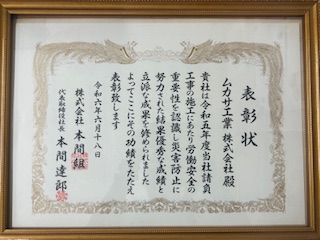 表彰状
ムカサ工業 株式会社 殿
貴社は令和五年度当社請負
工事の施工にあたり労働安全の
重要性を認識し災害防止に
努力された結果優秀な成績と
立派な成果を修められました
よってここにその功績をたたえ
表彰致します
令和六年六月十八日
株式会社 本間組
代表取締役社長 本間達郎